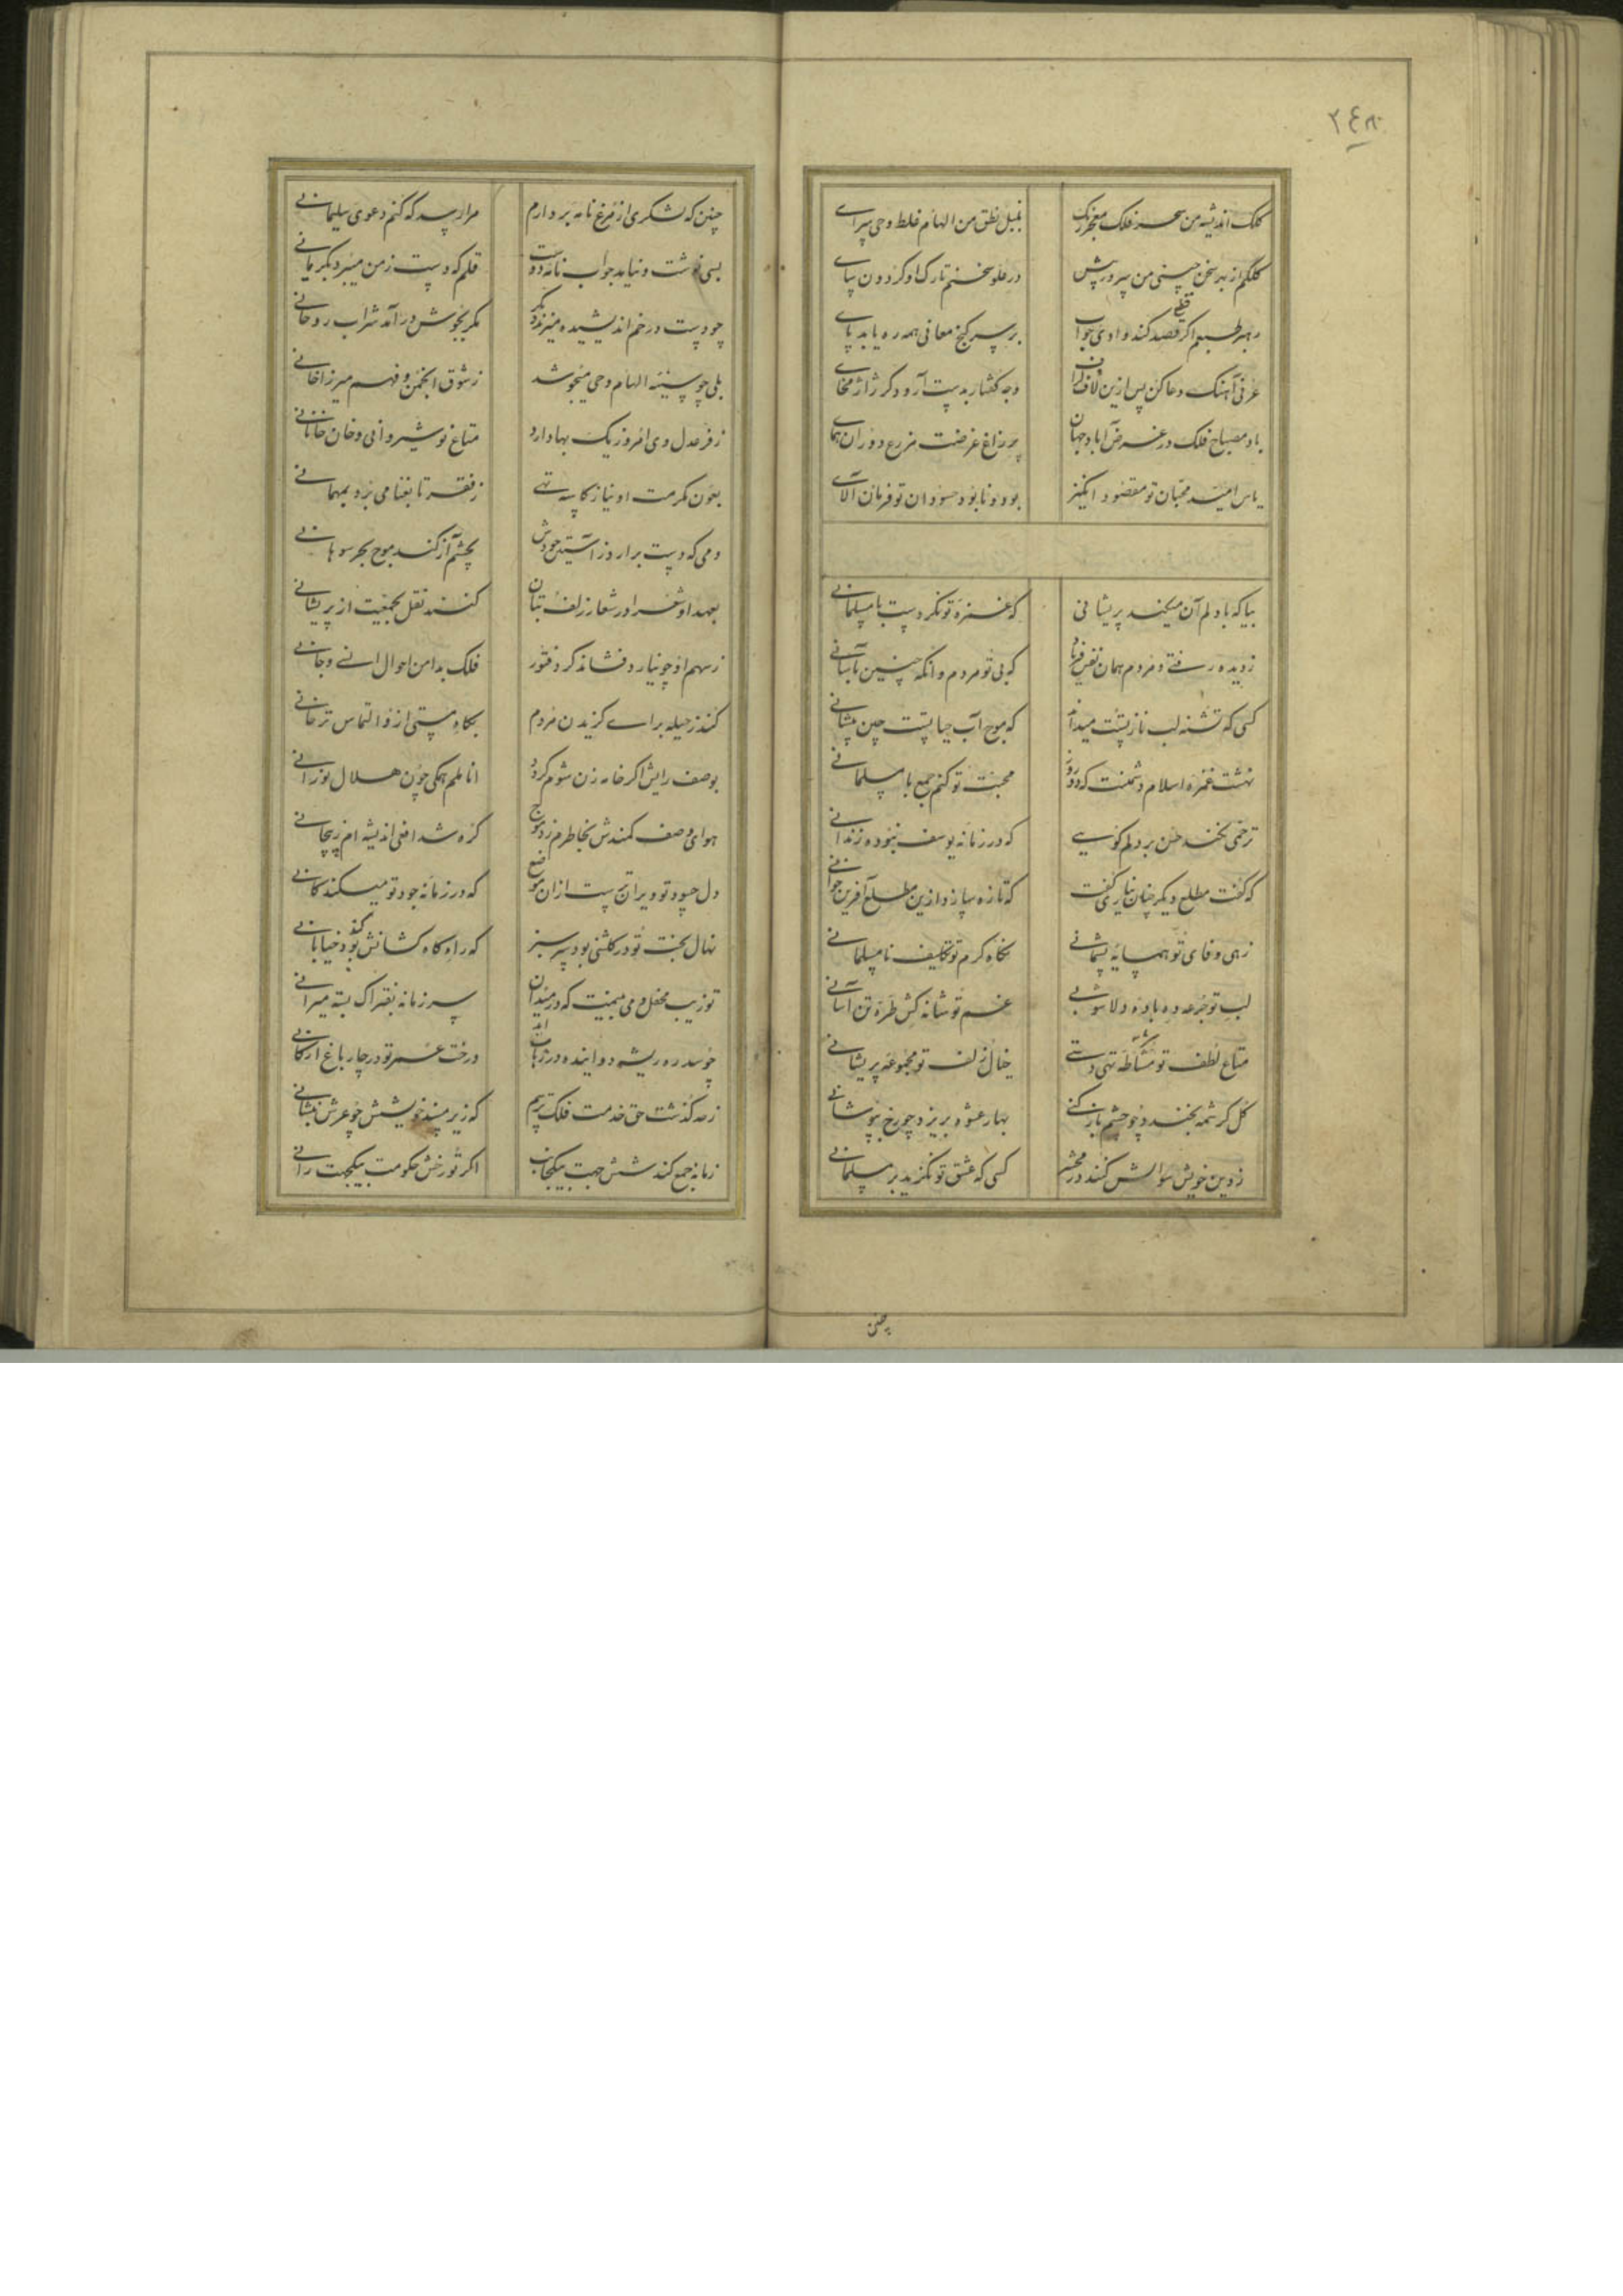 ٢٤٨
کلک اندیشه من سحر فلک معجز رنگ بلبل نطق من الهام غلط وحی سرای
کلکم از بهر سخن چینی من سر در پیش در علو سخنم تارک او گردون سای
رهبر طبعم اگر قصد کند وادی جواب بر سر گنج معانی همه ره یابد پای
عرفی آهنگ دعا کن پس ازین لاف وجه گفتار بدست آر و دگر ژاژ مخای
باد مصباح فلک در غرض آباد جهان پر زاغ غرضت مزرع دوران همای
یاس امید محبان تو مقصود انگیز بود و نابود حسودان تو فرمان آلای
بیا که با دلم آن میکند پریشانی که غمزهٔ تو نکردست با مسلمانی
ز دیده رفتی و مردم همان نفس که بی تو مردم و آنگه چنین بآسانی
کسی که تشنه لب ناز تست میداند که موج آب حیاتست چین پیشانی
غمزه اسلام دشمنت که محبت تو کنم جمع با مسلمانی
ترحمی نکند حسن بر دلم گویی که در زمانه یوسف نبوده زندانی
که گفت مطلع دیگر چنان که تازه سازد ازین مطلع آفرین خوانی
زهی وفای تو همسایه پشمانی نگاه گرم تو تکلیف نامسلمانی
لب تو جرعه ده باده دلاشوبی غم تو شانه کش طره تن آسانی
متاع لطف تو مشاطه تهی دستی خیال زلف تو مجموعه پریشانی
گل کرشمه بخندد چو چشم باز کنی بهار عشوه بریزد چو رخ بپوشانی
ز دین خویش سوالش کنند در محشر کسی که عشق تو نگزید بر مسلمانی
چنین
چنین که لشکری از مرغ نامه بر دارم مرا رسد که کنم دعوی سلیمانی
بسی نوشت و نیامد جواب نامه دوست قلم که دست ز من میبرد بگریانی
چو دست در خم اندیشیده میزند دگر مگر بجوش درآمد شراب روحانی
بلی چو سینه الهام وحی میجوشد ز شوق انجمن و فهم میرزا خانی
ز فر عدل وی امروز یک بها دارد متاع نوشیروانی و خان خانانی
بعون مکرمت او نیاز کاسه تهی ز فقر تا بغنا می برد بمهمانی
دمی که دست برآرد ز آستین جودش بچشم آز کند موج بحر سوهانی
بعهد او شعرا در شعار زلف بتان کنند نقل بجمعیت از پریشانی
ز سهم او چو نیارد فشاند گرد فتور فلک بدامن احوال انسی و جانی
کند ز حیله برای گزیدن مردم بگاه مستی ازو التماس ترخانی
بوصف رایش اگر خامه زن شوم گردد اناملم همگی چون هلال نورانی
هوای وصف کمندش بخاطرم زد موج گره شد افعی اندیشه ام ز پیچانی
دل حسود تو ویرانست ازان موضع که در زمانه جود تو میکند کانی
نهال بخت تو در گلشنی بود سرسبز که راه کاهکشانش بود خیابانی
تو زیب محفل و می بینمت که در میدان سر زمانه بفتراک بسته میرانی
ریشه دوانیده درخت عمر تو در چار باغ ارکانی
ز حد گذشت حق خدمت فلک ترسم که زیر مسند خویشش چو عرش بنشانی
زمانه جمع کند شش جهت بیکجانب اگر تو رخش حکومت بیکجهت رانی